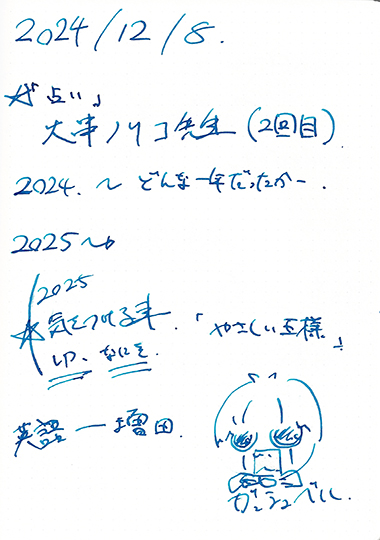 2024/12/8.
☆「占い」
大串ノリコ先生(2回目)
2024.〜どんな一年だったかー.
2025〜
2025
☆気をつける事.「やさしい王様」
いつ、なにを.
英語ー増田.
ガッシュベル.